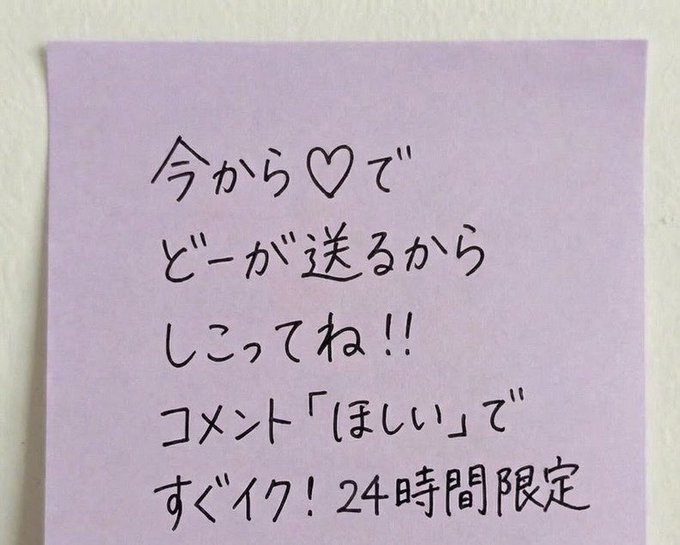 今から♡で
どーが送るから
しこってね!!
コメント「ほしい」で
すぐイク! 24時間限定